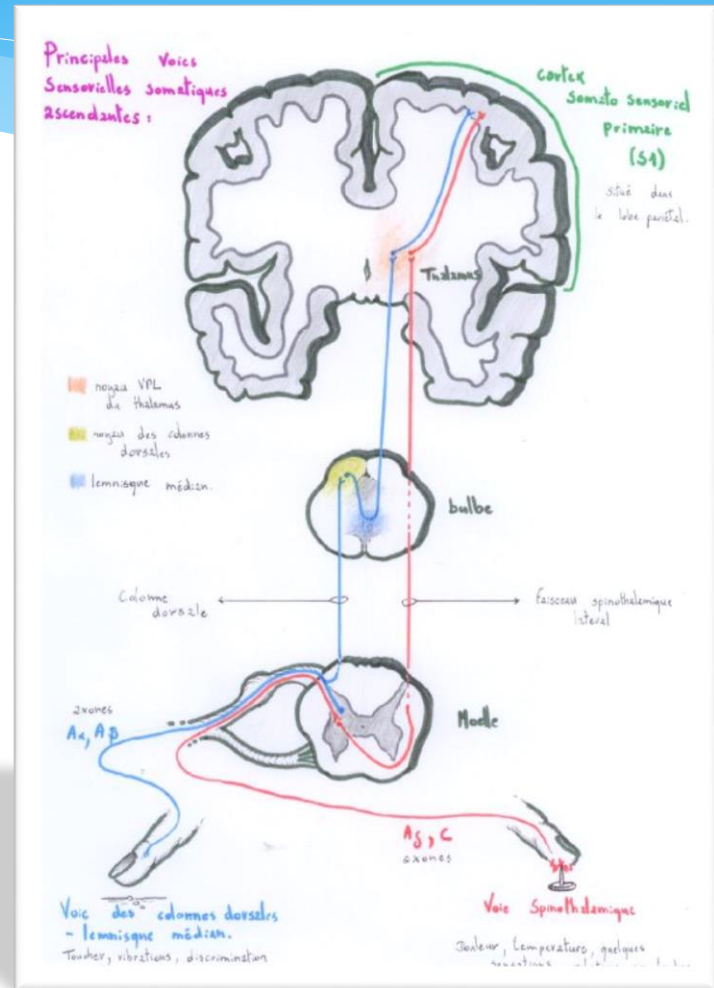 Principales Voies
Sensorielles somatiques
ascendantes :
cortex
Somato sensoriel
primaire
(S1)
situé dans
le lobe pariétal.
Thalamus
noyau VPL
du thalamus
noyau des colonnes
dorsales
lemnisque médian.
bulbe
Colonne
dorsale
faisceau spinothalamique
latéral
axones
Aα, Aβ
Moelle
Aδ, C
axones
Voie des colonnes dorsales
- lemnisque médian.
Toucher, vibrations, discrimination
Voie Spinothalamique
Douleur, température, quelques
sensations